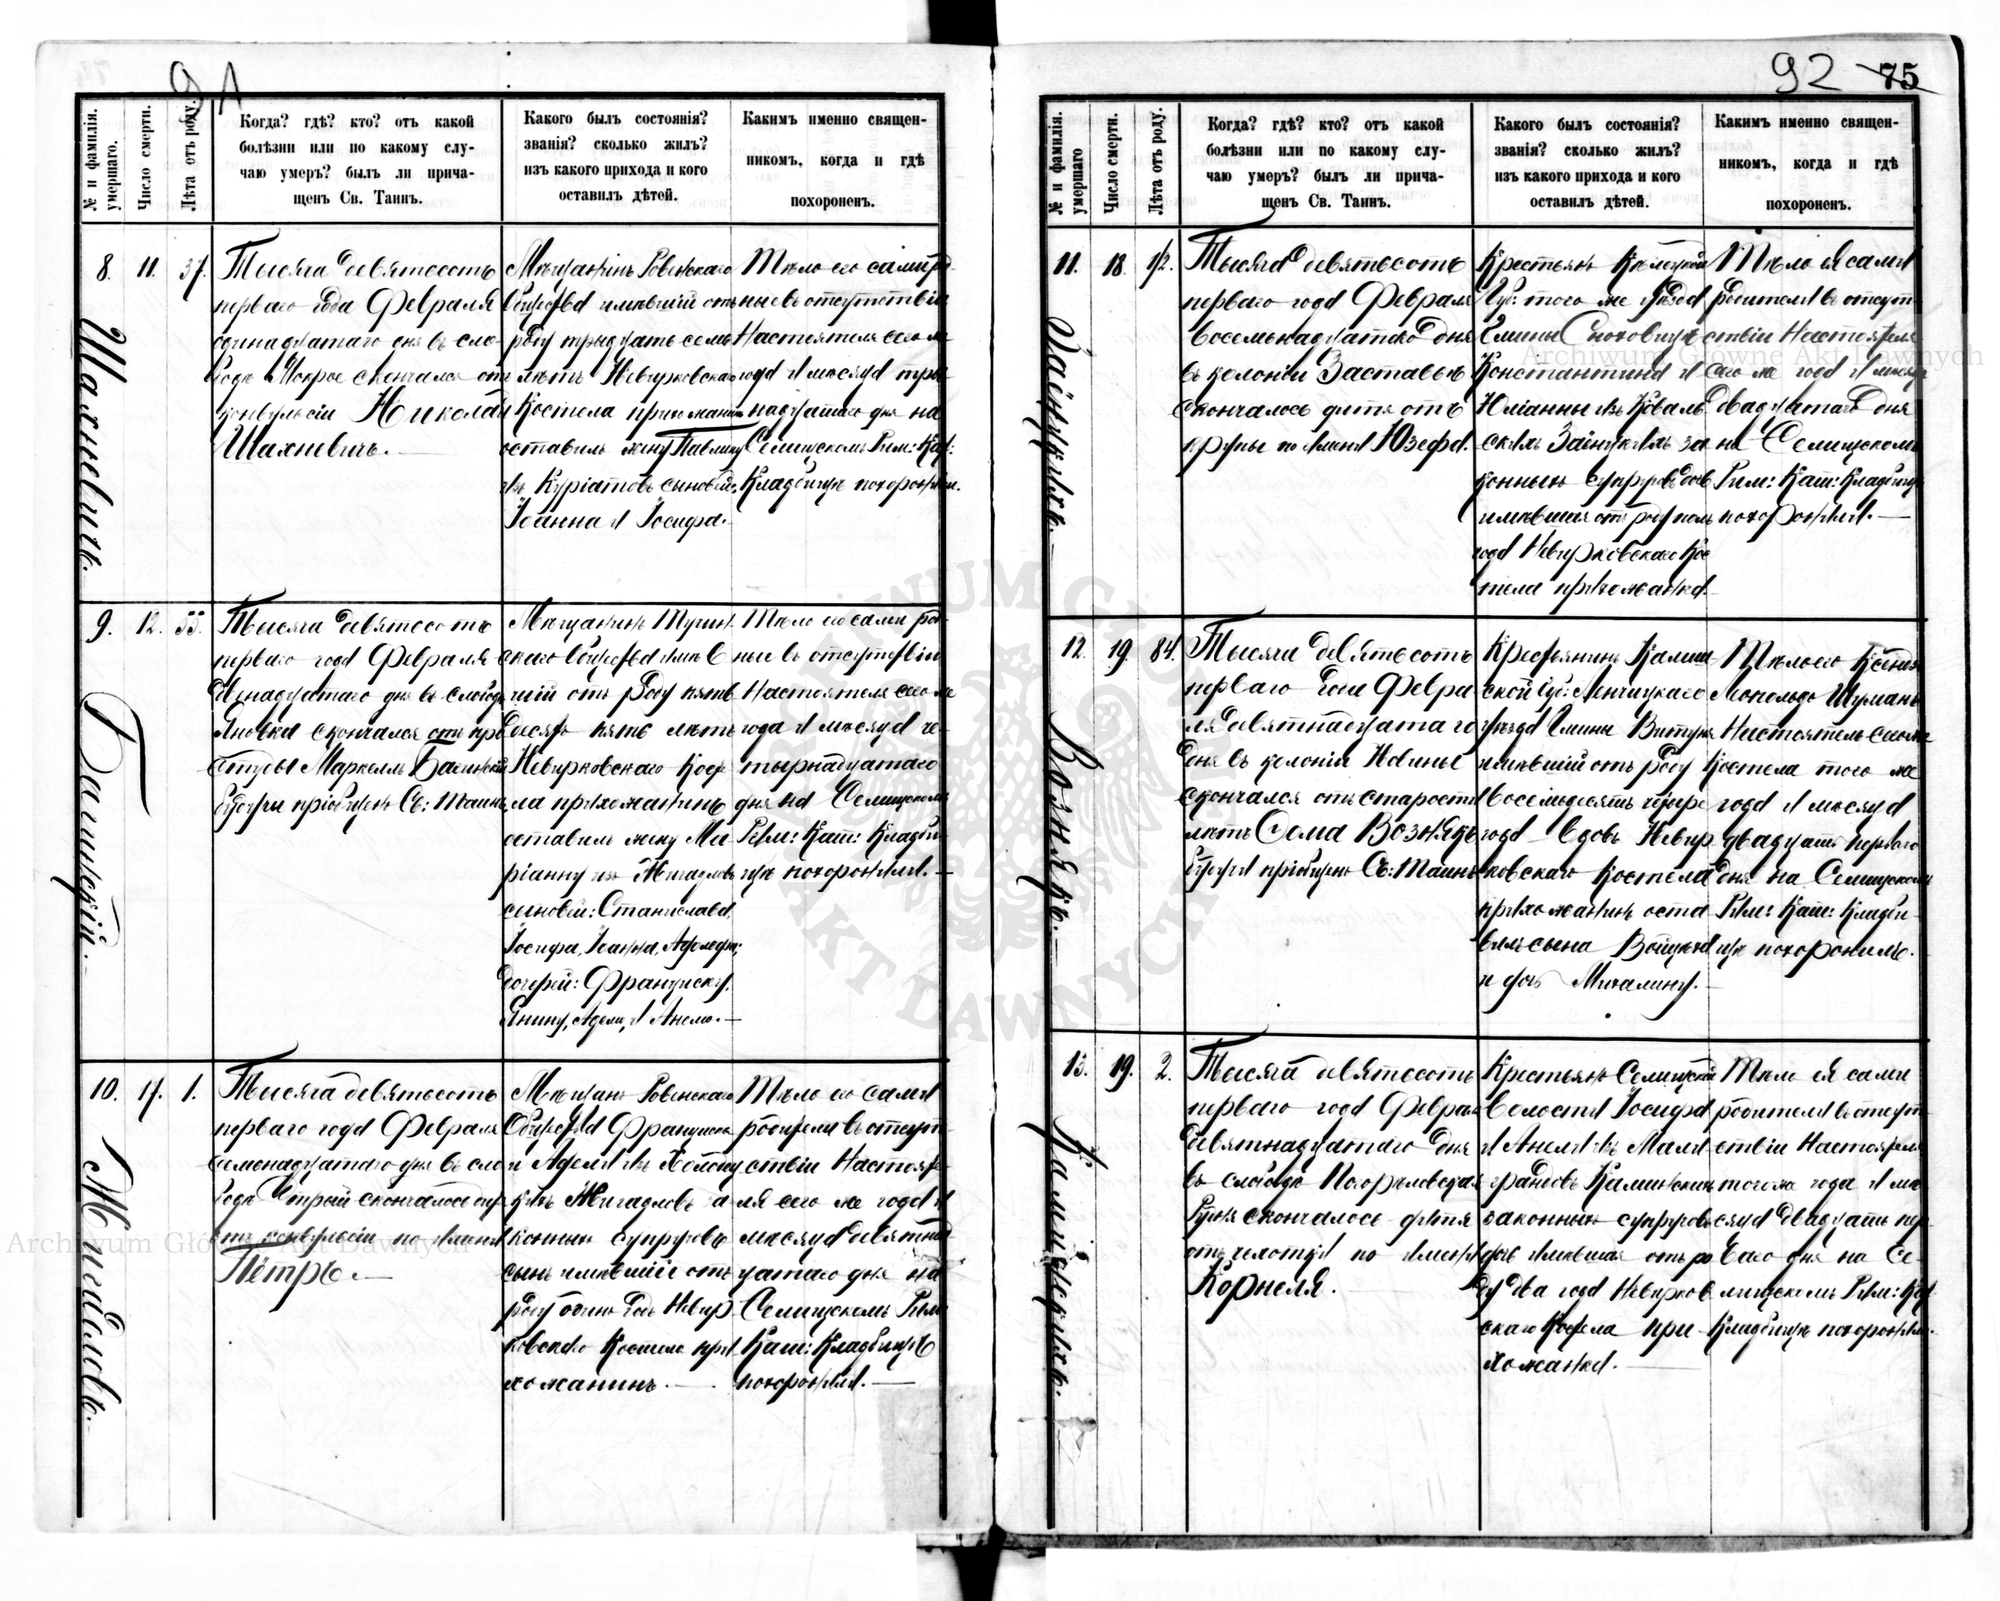 91
№ и фамилія. умершаго.
Число смерти.
Лѣта отъ роду.
Когда? гдѣ? кто? отъ какой
болѣзни или по какому слу-
чаю умеръ? былъ ли прича-
щенъ Св. Таинъ.
Какого былъ состоянія?
званія? сколько жилъ?
изъ какого прихода и кого
оставилъ дѣтей.
Какимъ именно священ-
никомъ, когда и гдѣ
похороненъ.
8.
Шахневичъ.
11.
37.
Тысяча девятьсотъ
перваго года Февраля
одинадцатаго дня въ сло-
бодѣ скончался отъ
конвульсіи Николай
Шахневичъ.
Мѣщанинъ Ровенскаго
Общества имѣвшій отъ
роду тридцать семь
лѣтъ Невирковскаго
Костела прихожанинъ
оставилъ жену Павлину
изъ сыновей:
Іоанна и Іосифа.
Тѣло его сами род-
ные въ отсутствіи
Настоятеля сего же
года и мѣсяца три-
надцатаго дня на
Селищскомъ Рим: Кат:
Кладбищѣ похоронили.
9.
Багинскій.
12.
55.
Тысяча девятьсотъ
перваго года Февраля
двенадцатаго дня въ слободѣ
Яновка скончался отъ про-
студы Маркелль Багинскій
будучи пріобщенъ Св: Таинъ
Мѣщанинъ Тучин-
скаго Общества имѣв-
шій отъ роду пять-
десятъ пять лѣтъ
Невирковскаго Косте-
ла прихожанинъ
оставилъ жену Ма-
ріанну изъ
сыновей: Станислава,
Іосифа, Іоанна,
дочерей: Франциску,
Янину, и
Тѣло его сами род-
ные въ отсутствіи
Настоятеля сего же
года и мѣсяца че-
тырнадцатаго
дня на Селищскомъ
Рим: Кат: Кладби-
щѣ похоронили.
10.
17.
1.
Тысяча девятьсотъ
перваго года Февраля
семнадцатаго дня въ сло-
бодѣ скончалось дитя
отъ конвульсіи по имени
Петръ.
Мѣщанъ Ровенскаго
Общества Франциска
и изъ
за-
конныхъ супруговъ
сынъ имѣвшій отъ
роду одинъ годъ Невир-
ковскаго Костела при-
хожанинъ.
Тѣло его сами
родители въ отсут-
ствіи Настояте-
ля сего же года и
мѣсяца девятнад-
цатаго дня на
Селищскомъ Рим:
Кат: Кладбищѣ
похоронили.
92 75
№ и фамилія. умершаго
Число смерти.
Лѣта отъ роду.
Когда? гдѣ? кто? отъ какой
болѣзни или по какому слу-
чаю умеръ? былъ ли прича-
щенъ Св. Таинъ.
Какого былъ состоянія?
званія? сколько жилъ?
изъ какого прихода и кого
оставилъ дѣтей.
Какимъ именно священ-
никомъ, когда и гдѣ
похороненъ.
11.
18.
1/2.
Тысяча девятьсотъ
перваго года Февраля
восемьнадцатаго дня
въ колоніи Заставье
скончалось дитя отъ
крупы по имени Юзефа.
Крестьянъ Кѣлецкой
Губ: того же уѣзда
Гмины
Константина и
Юліанны изъ Коваль-
скихъ за-
конныхъ супруговъ дочь
имѣвшая отъ роду полъ
года Невирковскаго Кос-
тела прихожанка
Тѣло ея сами
родители въ отсут-
ствіи Настоятеля
сего же года и мѣсяца
двадцатаго дня
на Селищскомъ
Рим: Кат: Кладбищѣ
похоронили.
12.
Вознякъ.
19.
84.
Тысяча девятьсотъ
перваго года Февра-
ля девятнадцатаго
дня въ колоніи Новины
скончался отъ старости
лѣтъ Сема Вознякъ
будучи пріобщенъ Св: Таинъ
Крестьянинъ Калиш-
ской Губ: Ленчицкаго
уѣзда Гмины
имѣвшій отъ роду
восемьдесятъ четыре
года вдовъ Невир-
ковскаго Костела
прихожанинъ оста-
вилъ сына
и дочь Михалину.
Тѣло его Ксендзъ
Леопольдъ Шуманъ
Настоятель сего же
Костела того же
года и мѣсяца
двадцать перваго
дня на Селищскомъ
Рим: Кат: Кладби-
щѣ похоронилъ.
13.
Каминскихъ.
19.
2.
Тысяча девятьсотъ
перваго года Февраля
девятнадцатаго дня
въ слободѣ Погорѣловская
скончалось дитя
отъ по имени
Корнеля.
Крестьянъ Селищской
волости Іосифа
и Анели изъ
Каминскихъ
законныхъ супруговъ
дочь имѣвшая отъ ро-
ду два года Невирков-
скаго Костела при-
хожанка.
Тѣло ея сами
родители въ отсут-
ствіи Настоятеля
того же года и мѣ-
сяца двадцать пер-
ваго дня на Се-
лищскомъ Рим: Кат:
Кладбищѣ похоронили.
Archiwum Główne Akt Dawnych
Archiwum Główne Akt Dawnych
ARCHIWUM GŁÓWNE AKT DAWNYCH